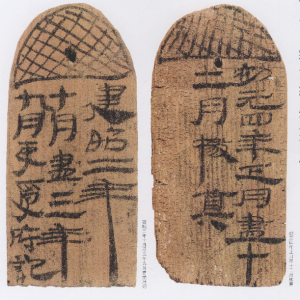 初元四年正月盡十
二月檄
建昭二年
十月盡三年
九月吏受府記